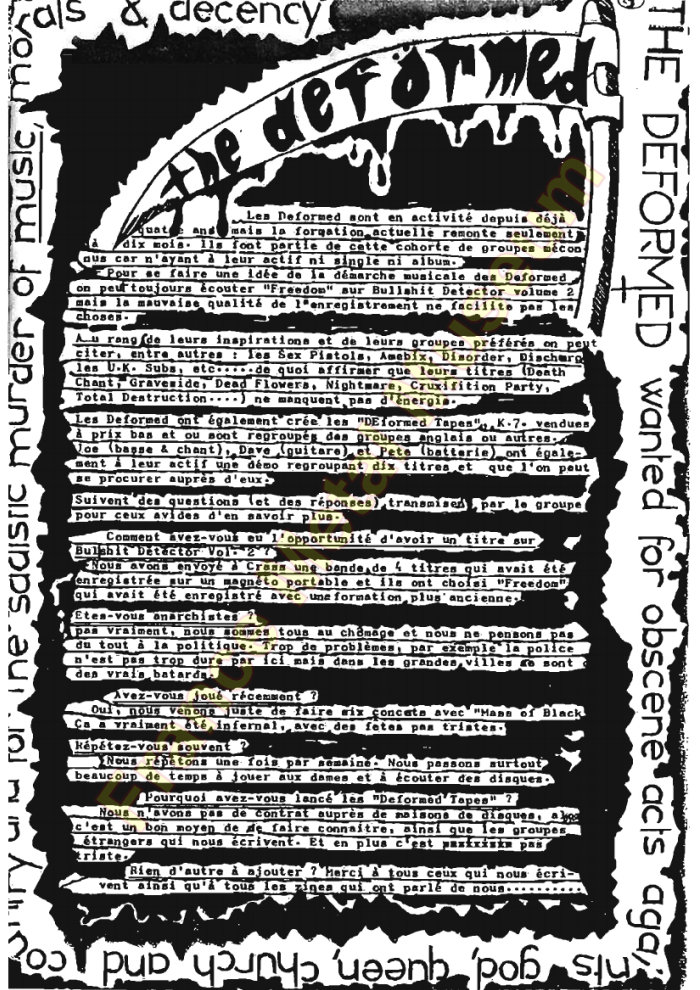 the deformed
Les Deformed sont en activité depuis déjà
quatre ans mais la formation actuelle remonte seulement
à dix mois. Ils font partie de cette cohorte de groupes mécon-
nus car n'ayant à leur actif ni single ni album.
Pour se faire une idée de la démarche musicale des Deformed
on peut toujours écouter "Freedom" sur Bullshit Detector volume 2
mais la mauvaise qualité de l'enregistrement ne facilite pas les
choses.
Au rang de leurs inspirations et de leurs groupes préférés on peut
citer, entre autres : les Sex Pistols, Amebix, Disorder, Discharge
les U.K. Subs, etc.....de quoi affirmer que leurs titres (Death
Chant, Graveside, Dead Flowers, Nightmare, Cruxifition Party,
Total Destruction....) ne manquent pas d'énergie.
Les Deformed ont également crée les "DEformed Tapes", K.7. vendues
à prix bas et ou sont regroupés des groupes anglais ou autres.
Joe (basse & chant), Dave (guitare) et Pete (batterie) ont égale-
ment à leur actif une démo regroupant dix titres et que l'on peut
se procurer auprès d'eux.
Suivent des questions (et des réponses) transmises par le groupe
pour ceux avides d'en savoir plus.
Comment avez-vous eu l'opportunité d'avoir un titre sur
Bullshit Détector Vol. 2 ?
Nous avons envoyé à Crass une bande de 4 titres qui avait été
enregistrée sur un magnéto portable et ils ont choisi "Freedom"
qui avait été enregistré avec uneformation plus ancienne.
Etes-vous anarchistes ?
pas vraiment, nous sommes tous au chômage et nous ne pensons pas
du tout à la politique. Trop de problèmes, par exemple la police
n'est pas trop dure par ici mais dans les grandes villes se sont
des vrais batards.
Avez-vous joué récemment ?
Oui, nous venons juste de faire six concets avec "Mass of Black
Ça a vraiment été infernal, avec des fetes pas tristes.
Répétez-vous souvent ?
Nous répétons une fois par semaine. Nous passons surtout
beaucoup de temps à jouer aux dames et à écouter des disques.
Pourquoi avez-vous lancé les "Deformed Tapes" ?
Nous n'avons pas de contrat auprès de maisons de disques,
c'est un bon moyen de se faire connaitre, ainsi que les groupes
étrangers qui nous écrivent. Et en plus c'est pas
triste.
Rien d'autre à ajouter ? Merci à tous ceux qui nous écri-
vent ainsi qu'à tous les zines qui ont parlé de nous..........
THE DEFORMED wanted for obscene acts agai
nts god, queen, church and co
ntry and for the sadistic murder of music, mor
als & decency
France Metal Museum